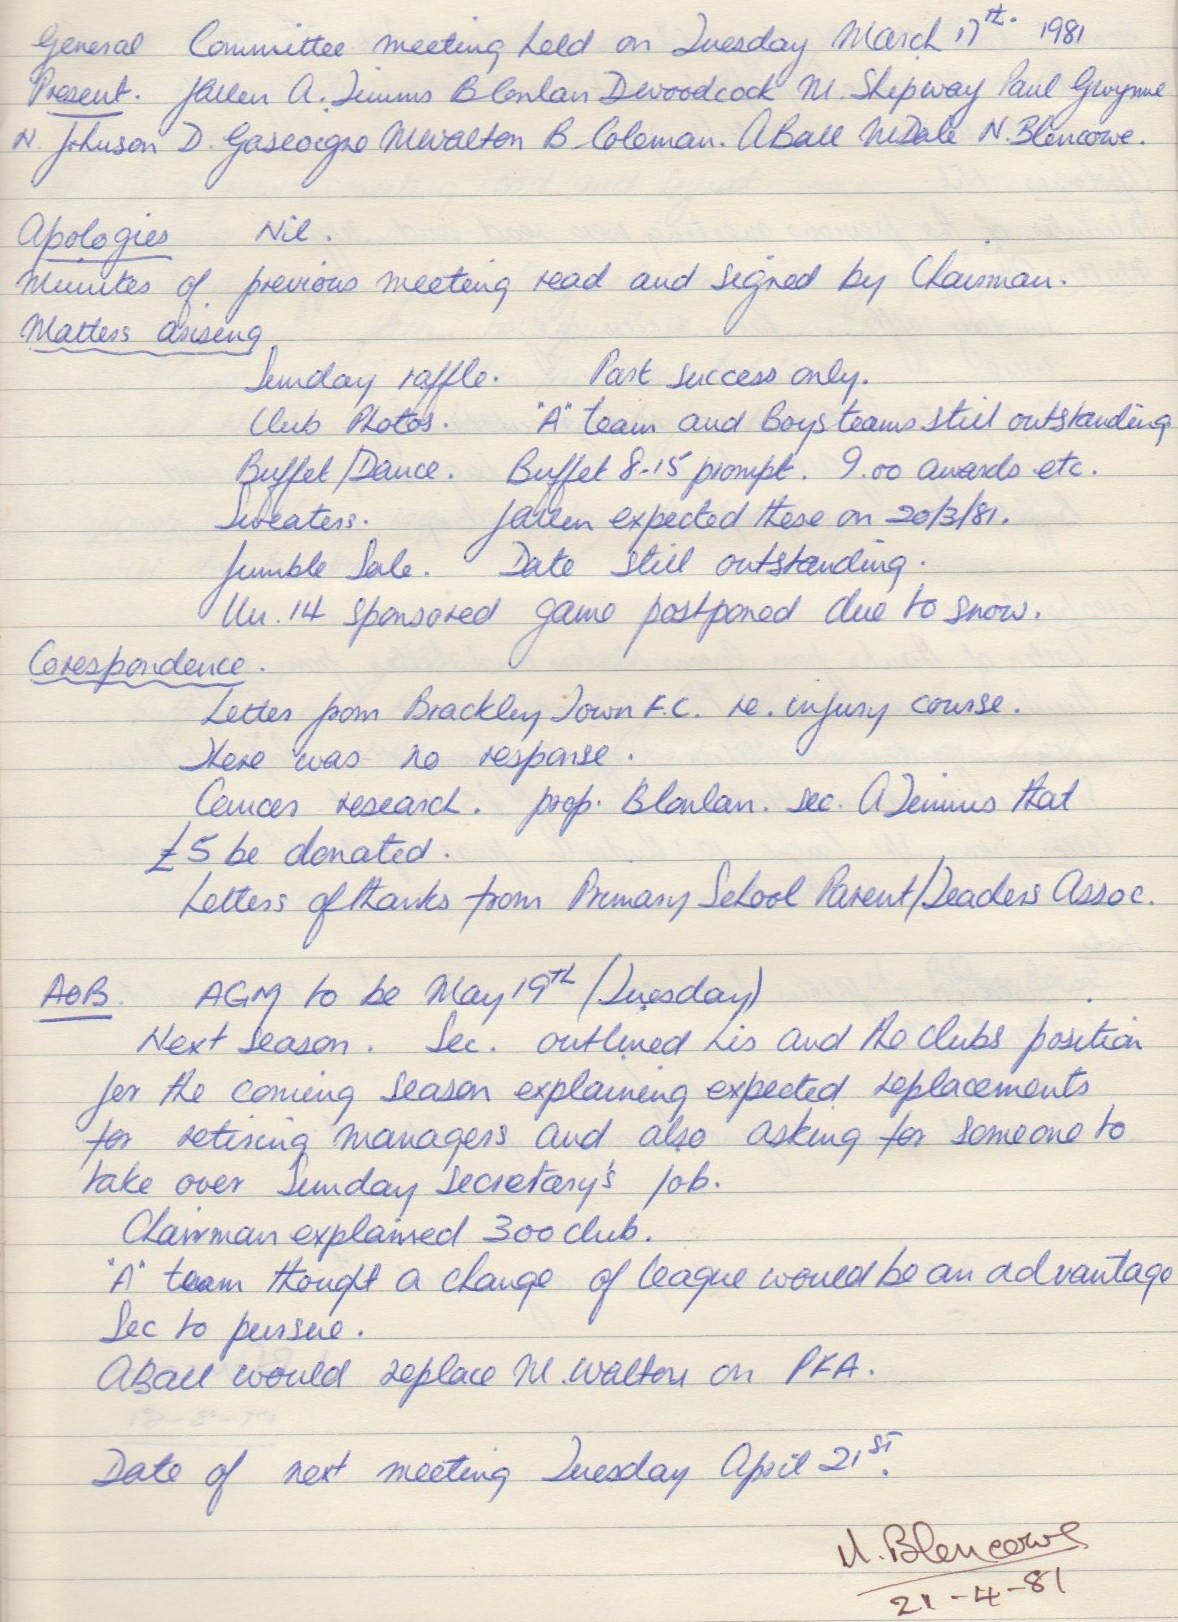 General Committee meeting held on Tuesday March 17th. 1981
Present. J Allen A. Timms B Conlan D Woodcock M. Shipway Paul Gwynne
N. Johnson D. Gascoigne M Walton B Coleman. A Ball M Dale N. Blencowe.
Apologies Nil.
Minutes of previous meeting read and signed by Chairman.
Matters arising
Sunday raffle. Part success only.
Club Photos. "A" team and Boys teams still outstanding
Buffet/Dance. Buffet 8-15 prompt. 9.00 awards etc.
Sweaters. J Allen expected these on 20/3/81.
Jumble Sale. Date still outstanding.
Un. 14 sponsored game postponed due to snow.
Corespondence.
Letter from Brackley Town F.C. re. injury course.
There was no response.
Cancer research. prop. B Conlan. sec. A Timms that
£5 be donated.
Letters of thanks from Primary School Parent/Teachers Assoc.
AOB. AGM to be May 19TH (Tuesday)
Next season. Sec. outlined his and the clubs position
for the coming season explaining expected replacements
for retiring managers and also asking for someone to
take over Sunday secretary's job.
Chairman explained 300 club.
"A" team thought a change of league would be an advantage
Sec to pursue.
A Ball would replace M. Walton on PFA.
Date of next meeting Tuesday April 21ST.
N. Blencowe
21-4-81